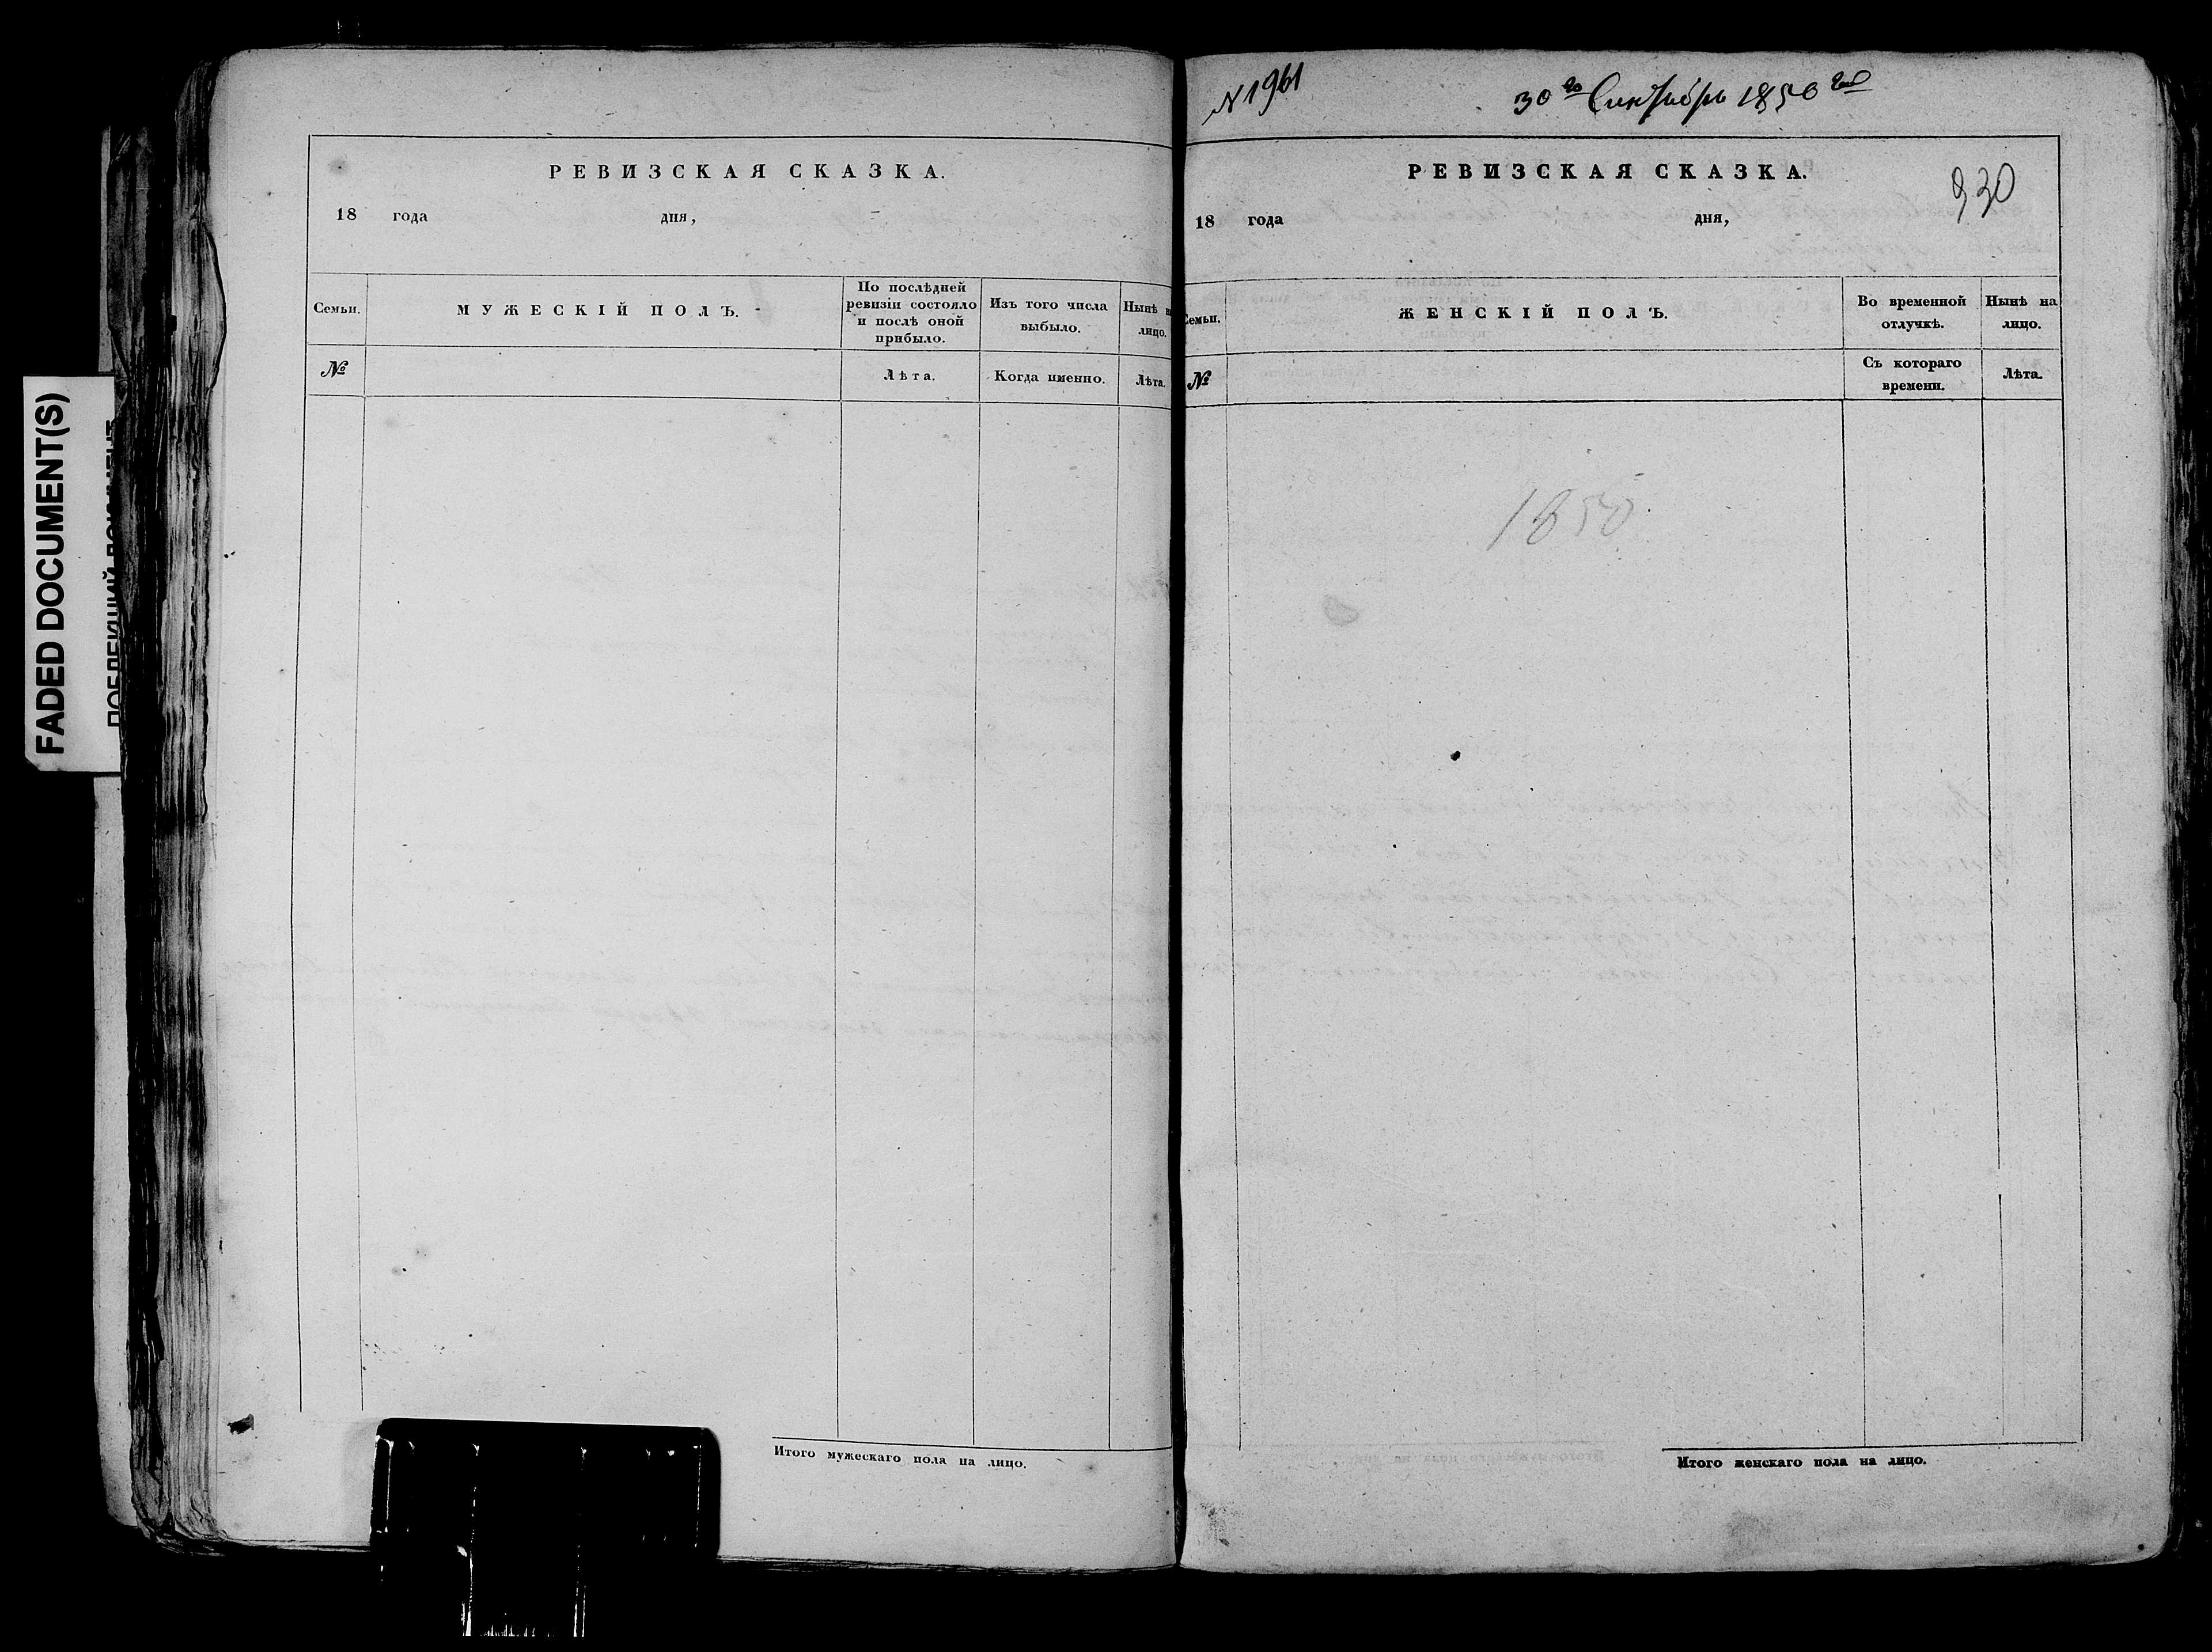 FADED DOCUMENT(S)
РЕВИЗСКАЯ СКАЗКА.
18 года дня,
Семьи.
МУЖЕСКІЙ ПОЛЪ.
По послѣдней
ревизіи состояло
и послѣ оной
прибыло.
Изъ того числа
выбыло.
Нынѣ н
лицо.
№
Лѣта.
Когда именно.
Лѣта.
Итого мужескаго пола на лицо.
N 1961
30го Сентября 1850 год
РЕВИЗСКАЯ СКАЗКА.
930
18 года дня,
Семьи.
ЖЕНСКІЙ ПОЛЪ.
Во временной
отлучкѣ.
Нынѣ на
лицо.
№
Съ котораго
времени.
Лѣта.
1850
Итого женскаго пола на лицо.